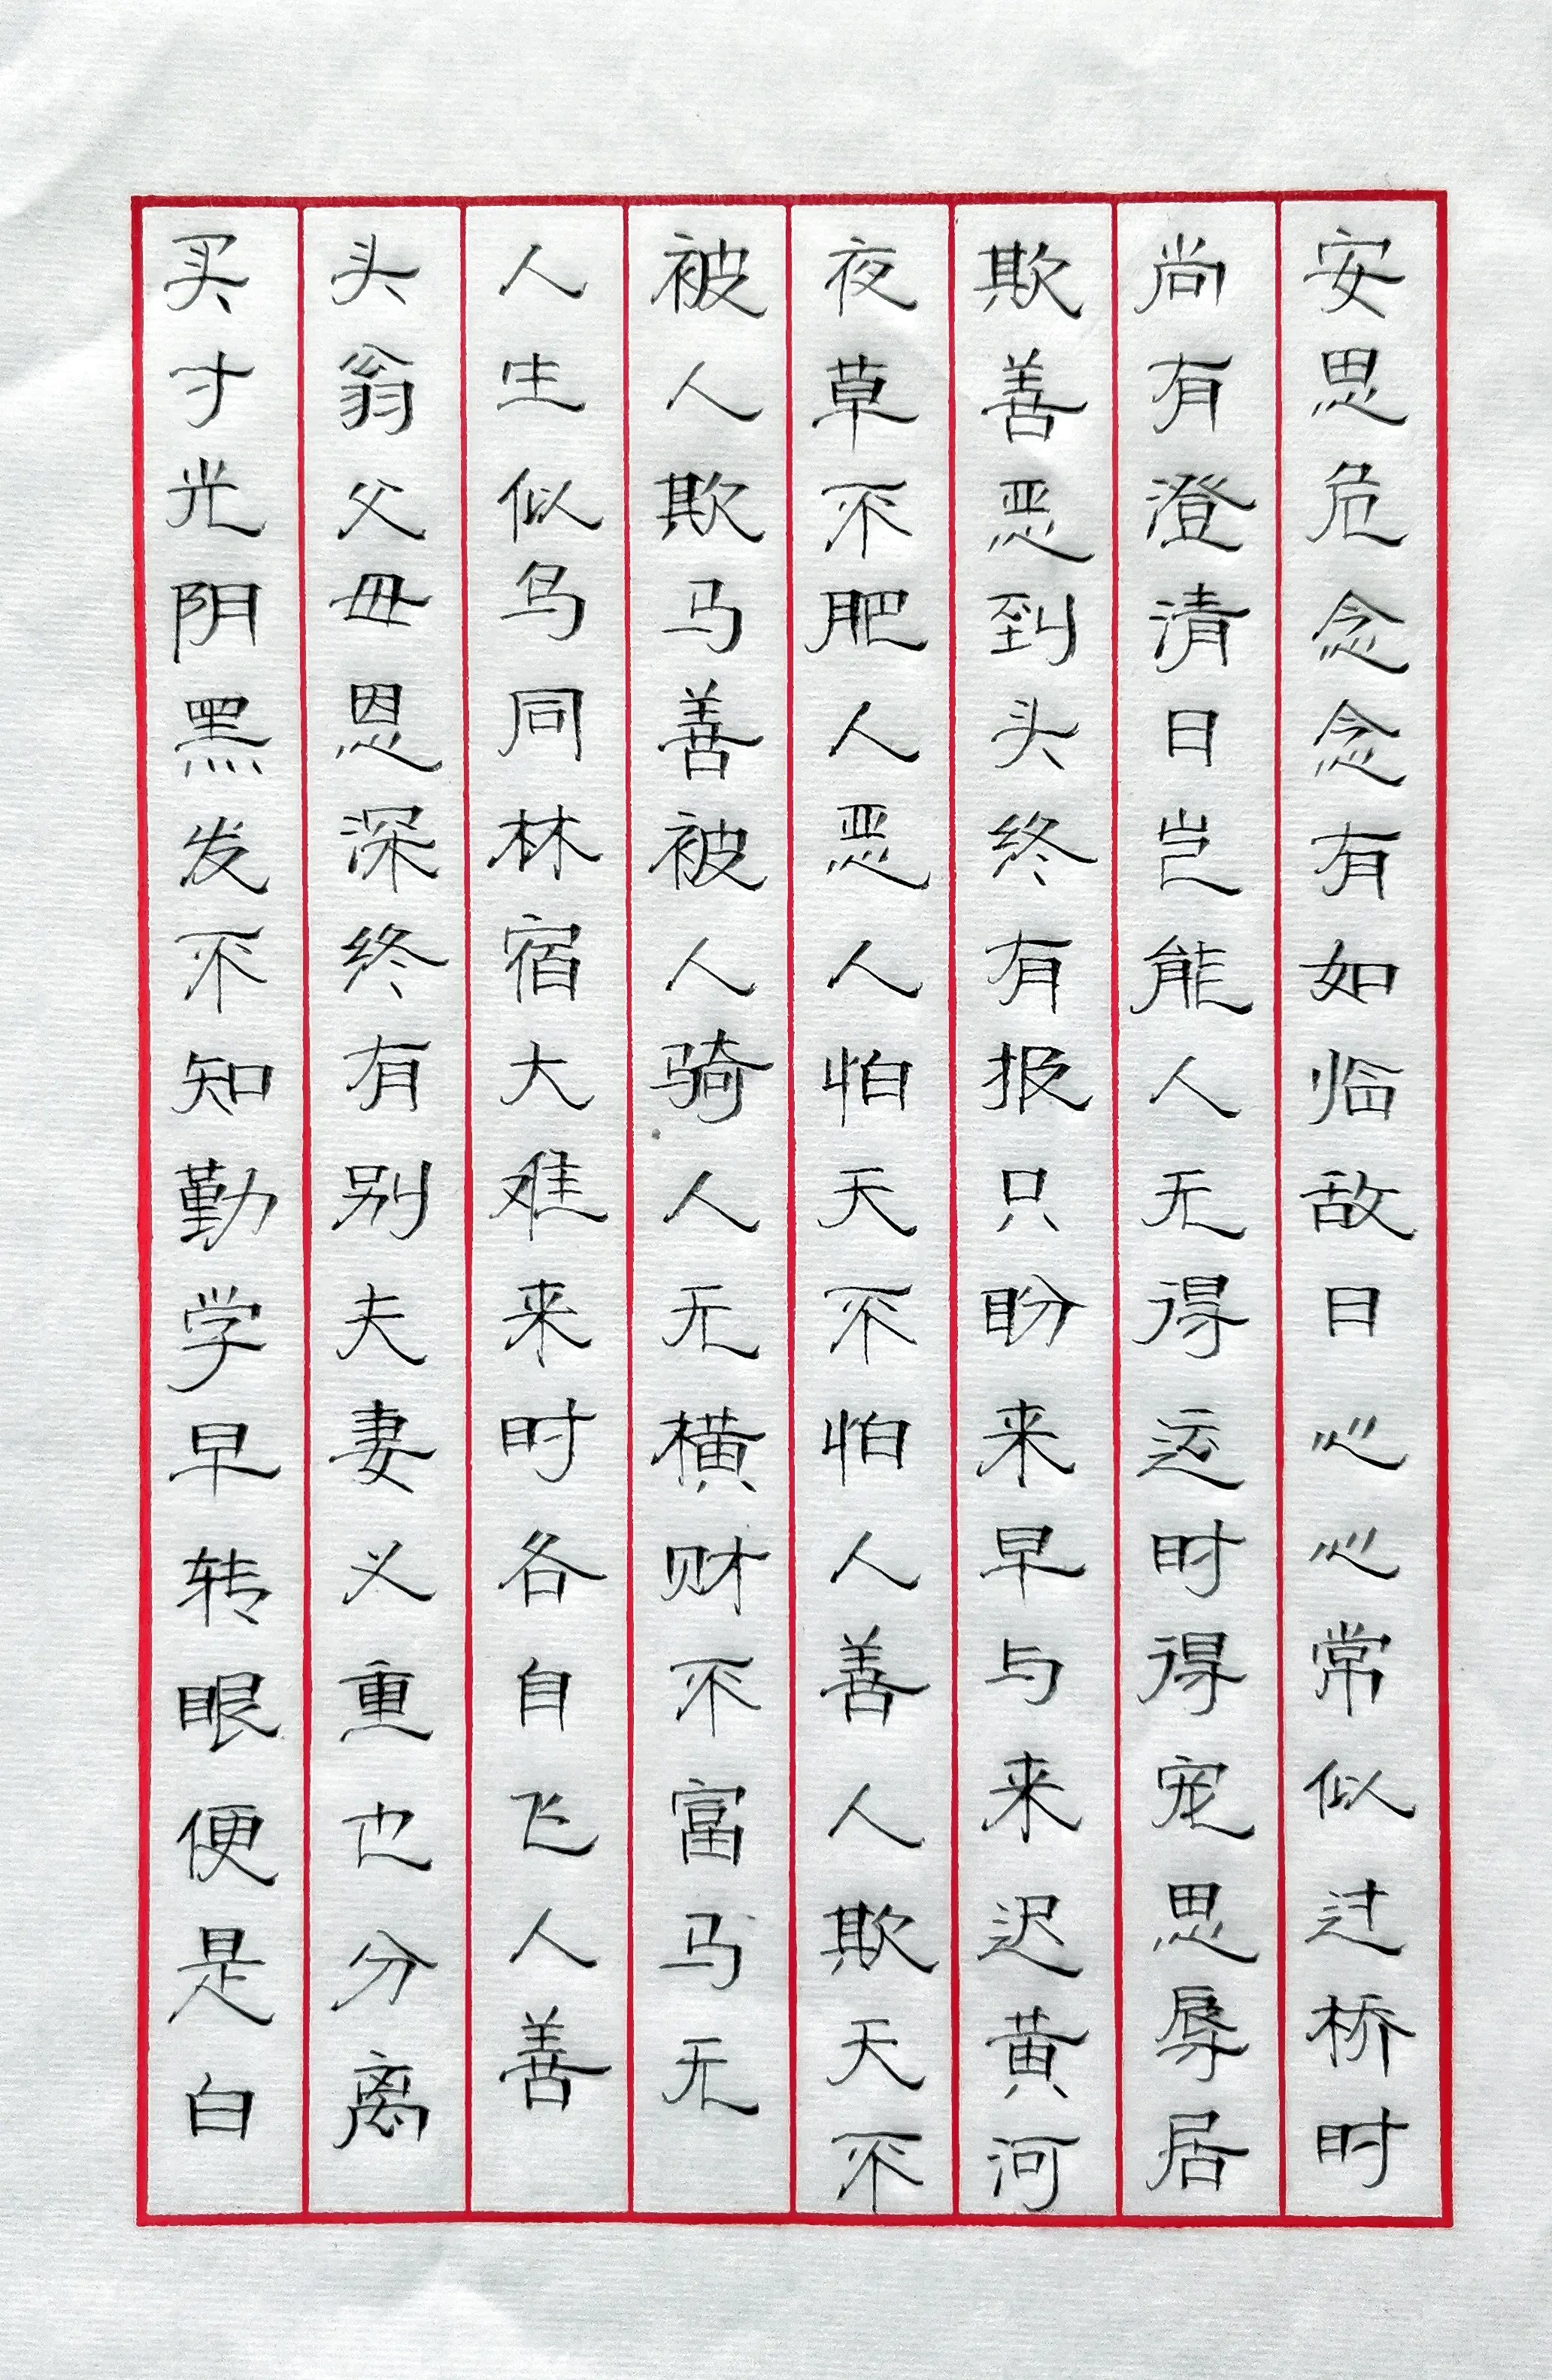 安思危念念有如临敌日心心常似过桥时
尚有澄清日岂能人无得运时得宠思辱居
欺善恶到头终有报只盼来早与来迟黄河
夜草不肥人恶人怕天不怕人善人欺天不
被人欺马善被人骑人无横财不富马无
人生似鸟同林宿大难来时各自飞人善
头翁父母恩深终有别夫妻义重也分离
买寸光阴黑发不知勤学早转眼便是白